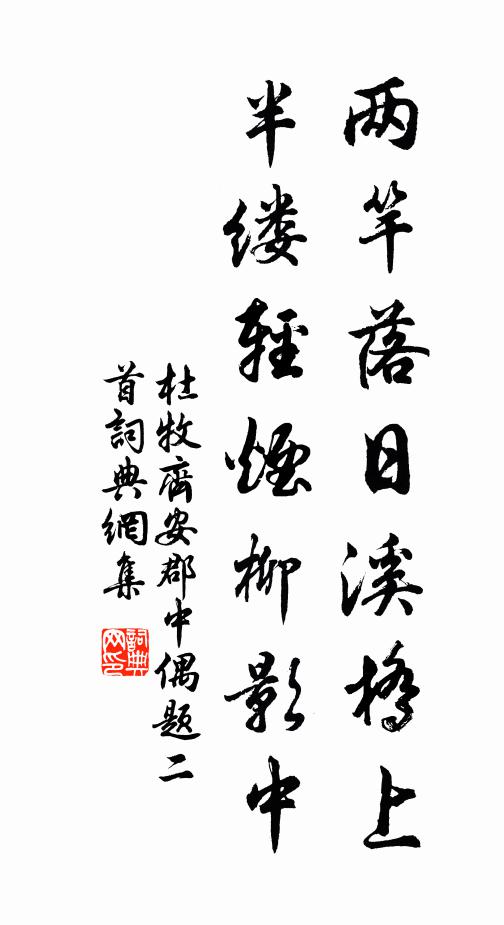 两竿落日溪橋上
半缕輕煙柳影中
杜牧齊安郡中偶题二
首詞典網集
詞典
网印